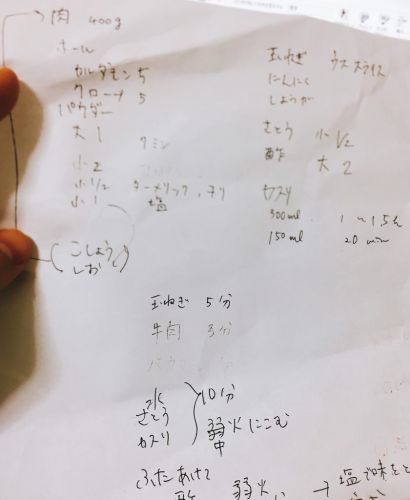 肉 400g
ホール
カルダモン 5
クローブ 5
パウダー
大 1 クミン
小 2
小 1/2 ターメリック、チリ
小 1 塩
(こしょう
しお)
玉ねぎ ウススライス
にんにく
しょうが
さとう 小 1/2
酢 大 2
カスリ
300ml 1〜1.5h
150ml 20 min
玉ねぎ 5分
牛肉 3分
水
さとう
カスリ
10分
弱火にこむ
中
ふたあけて
弱火 → 塩で味をと